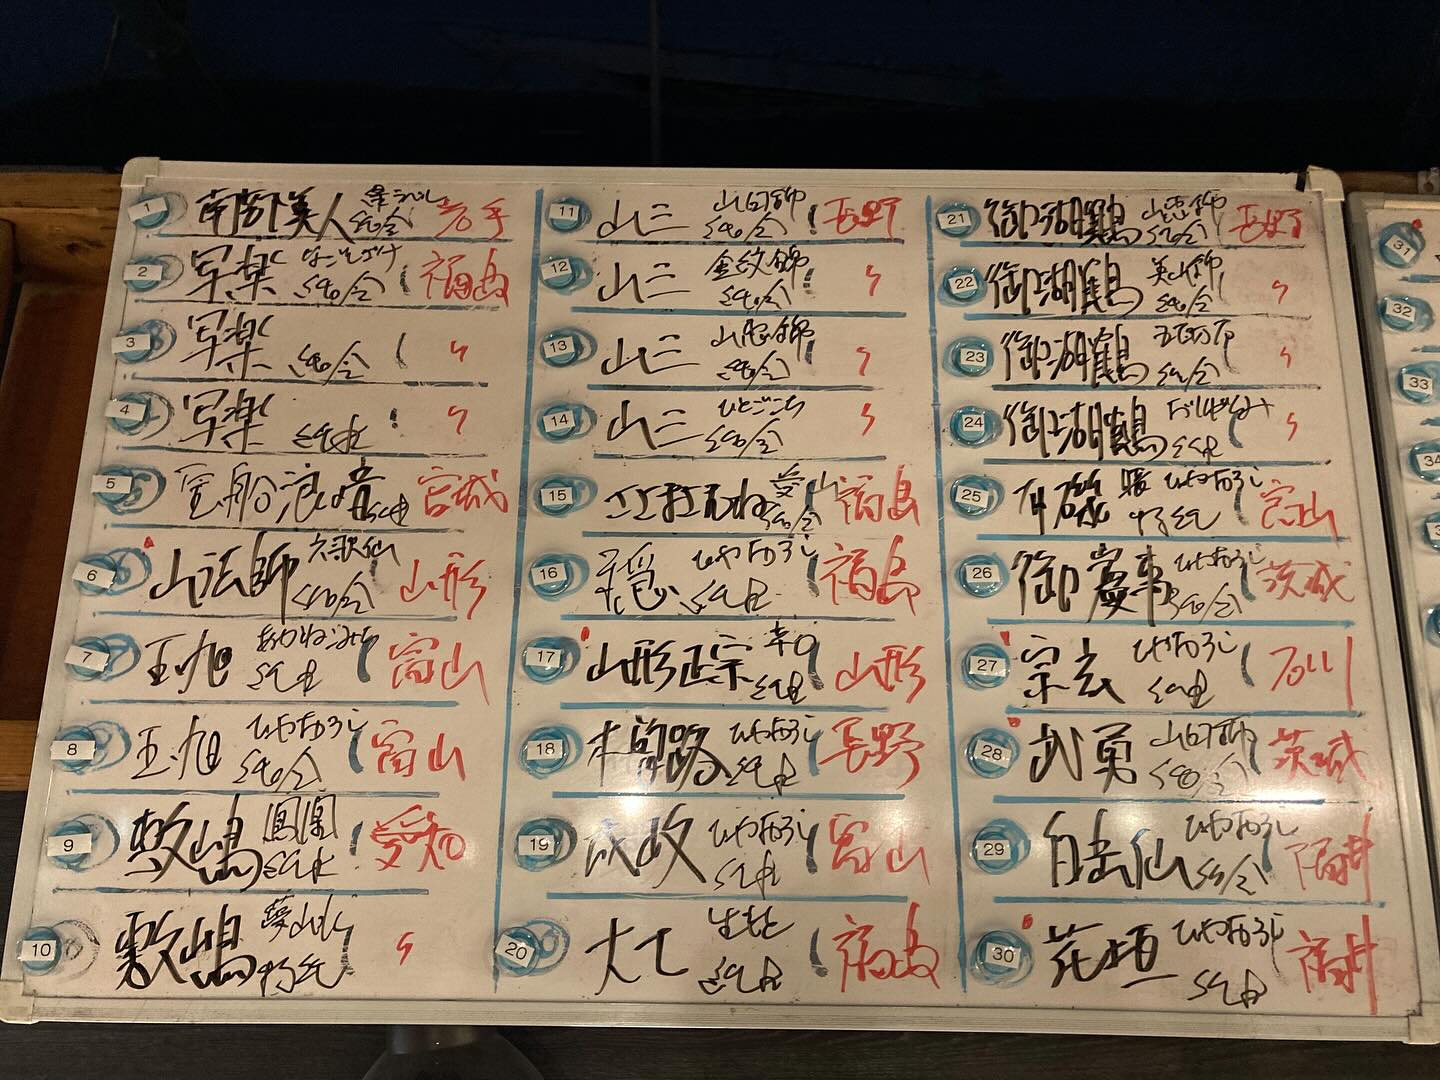 1 南部美人 純吟 岩手
2 写楽 なごしざけ 純吟 福島
3 写楽 純吟 〃
4 写楽 純米 〃
5 宝船浪の音 純米 宮城
6 山法師 六歌仙 純吟 山形
7 玉旭 純米 富山
8 玉旭 ひやおろし 純吟 富山
9 敷嶋 純米 愛知
10 敷嶋 夢山水 特純 〃
11 山三 山田錦 純吟 長野
12 山三 金紋錦 純吟 〃
13 山三 山恵錦 純吟 〃
14 山三 ひとごこち 純吟 〃
15 愛山 純吟 福島
16 穏 ひやおろし 純米 福島
17 山形正宗 辛口 純米 山形
18 木曽路 ひやおろし 純米 長野
19 成政 ひやおろし 純米 富山
20 大七 生もと 純米 福島
21 御湖鶴 山恵錦 純吟 長野
22 御湖鶴 美山錦 純吟 〃
23 御湖鶴 五百万石 純吟 〃
24 御湖鶴 純米 〃
25 有磯 曙 ひやおろし 特純 富山
26 御慶事 ひやおろし 純吟 茨城
27 宗玄 ひやおろし 純米 石川
28 武勇 山田錦 純吟 茨城
29 白岳仙 ひやおろし 純吟 福井
30 花垣 ひやおろし 純米 福井
31
32
33
34